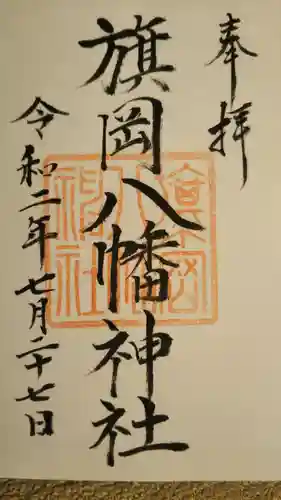 奉拝
旗岡八幡神社
令和二年七月二十七日